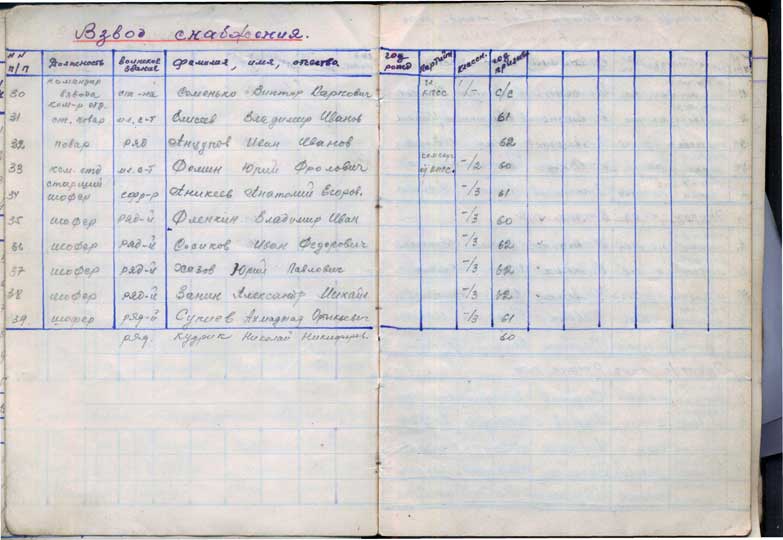 Взвод снабжения.
NN п/п Должность воинское звание фамилия, имя, отчество год рожд Партийн классн. год призыва
командир
30 взвода ст-на Семенько Виктор Карпович класс 1/- с/с
ком-р отд.
31 ст. повар мл. с-т Елисеев Владимир Иванов 61
32 повар ряд Иван Иванов 62
33 ком. отд мл. с-т Фомин Юрий Фролович -/2 60
старший
34 шофер ефр-р Аникеев Анатолий Егоров. -/3 61
35 шофер ряд-й Фленкин Владимир Иван -/3 60
36 шофер ряд-й Иван Федорович -/3 62
37 шофер ряд-й Хазов Юрий Павлович -/3 62
38 шофер ряд-й Занин Александр Михайл -/3 62
39. шофер ряд-й -/3 61
ряд. Кудрик Николай Никифоров. 60